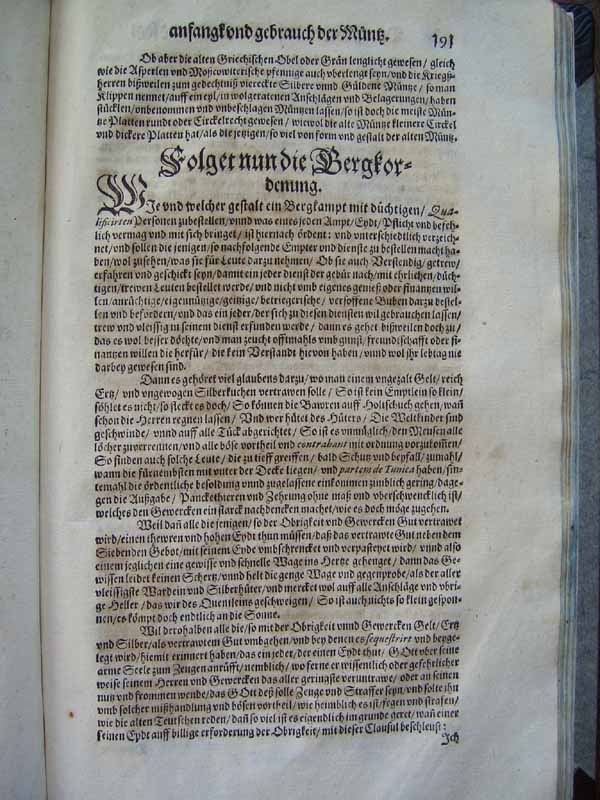 anfangk vnd gebrauch der Müntz. 191
Ob aber die alten Griechischen Obel oder Grän lenglicht gewesen / gleich
wie die Asperlen vnd Moscowiterische pfennige auch vberlengt seyn / vnd die Kriegs-
herren bißweilen zum gedechtniß viereckte Silbere vnnd Güldene Müntze / so man
Klippen nennet / auff ein eyl / in wolgeratenen Anschlägen vnd Belagerungen / haben
stücklen / onbenommen vnd vnbeschlagen Müntzen lassen / so ist doch die meiste Mün-
tze Platten rundt oder Circkelrecht gewesen / wiewol die alte Müntze kleinere Circkel
vnd dickere Platten hat / als die jetzigen / so viel von form vnd gestalt der alten Müntz.
Folget nun die Bergkor-
denung.
WJe vnd welcher gestalt ein Bergkampt mit düchtigen / Qua-
lificirten Personen zubestellen / vnnd was eines jeden Ampt / Eydt / Pflicht vnd befeh-
lich vermag vnd mit sich bringet / ist hiernach ördent: vnd unterschiedlich verzeich-
net / vnd sollen die jenigen / so nachfolgende Empter vnd dienste zu bestellen macht ha-
ben / wol zusehen / was sie für Leute darzu nehmen / Ob sie auch Verstendig / getrew /
erfahren vnd geschickt seyn / damit ein jeder dienst der gebür nach / mit ehrlichen / düch-
tigen / trewen Leuten bestellet werde / vnd nicht vmb eigenes genieß oder finantzen wil-
len / anrüchtige / eigennützige / geitzige / betriegerische / versoffene Buben darzu bestel-
len vnd befördern / vnd das ein jeder / der sich zu diesen diensten wil gebrauchen lassen /
trew vnd vleissig in seinem dienst erfunden werde / dann es gehet bißweilen doch zu /
das es wol besser döchte / vnd man zeucht offtmahls vmb gunst / freundschafft oder fi-
nantzen willen die herfür / die kein Verstandt hievon haben / vnnd wol jhr lebtag nie
darbey gewesen sind.
Dann es gehöret viel glaubens darzu / wo man einem vngezalt Gelt / reich
Ertz / vnd vngewogen Silberkuchen vertrawen solle / So ist kein Emptlein so klein /
söhlet es nicht / so steckt es doch / So können die Bawren auff Holtschuch gehen / wañ
schon die Herren regnen lassen / Vnd wer hütet des Hüters / Die Weltkinder sind
geschwinde / vnnd auff alle Tück abgerichtet / So ist es vnmüglich / den Meusen alle
löcher zuverrennen / vnd alle böse vortheil vnd contrabant mit ordnung vorzukom̃en /
So finden auch solche Leute / die zu tieff greiffen / bald Schutz vnd beyfall / zumahl /
wann die fürnembsten mit vnter der Decke liegen / vnd partem de Tunica haben / sin-
temahl die ördentliche besoldung vnnd zugelassene einkommen zimblich gering / dage-
gen die Außgabe / Panckethieren vnd Zehrung ohne maß vnd vberschwencklich ist /
welches den Gewercken ein starck nachdencken machet / wie es doch möge zugehen.
Weil dañ alle die jenigen / so der Obrigkeit vnd Gewercken Gut vertrawet
wird / einen thewren vnd hohen Eydt thun müssen / daß das vertrawte Gut neben dem
Siebenden Gebot / mit seinem Eyde vmbschrencket vnd verpasteyet wird / vnnd also
einem jeglichen eine gewisse vnd schnelle Wage ins Hertze gehenget / dann das Ge-
wissen leidet keinen Schertz / vnnd helt die genge Wage vnd gegenprobe / als der aller
vleissigste Wardein vnd Silberhüter / vnd mercket wol auff alle Anschläge vnd vbri-
ge Heller / das wir des Quentleins geschweigen / So ist auch nichts so klein gespon-
nen / es kömpt doch endtlich an die Sonne.
Wil derohalben alle die / so mit der Obrigkeit vnnd Gewercken Gelt / Ertz
vnd Silber / als vertrawtem Gut vmbgehen / vnd bey denen es sequestrirt vnd beyge-
legt wird / hiemit erinnert haben / das ein jeder / der einen Eydt thut / GOtt vber seine
arme Seele zum Zeugen anrüfft / nemblich / wo ferne er wissentlich oder gefehrlicher
weise seinem Herren vnd Gewercken das aller geringste veruntrawe / oder an seinen
nutz vnd frommen wende / das GOtt deß solle Zeuge vnd Straffer seyn / vnd solle jhn
vmb solcher mißhandlung vnd bösen vortheil / wie heimblich es ist / fegen vnd strafen /
wie die alten Teutschen reden / dañ so viel ist es eigendlich im grunde geret / wañ einer
seinen Eydt auff billige erforderung der Obrigkeit / mit dieser Clausul beschleust:
Jch